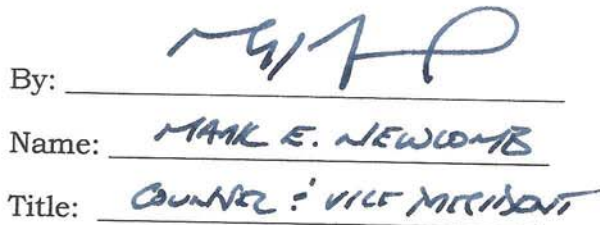 By:
Name: MARK E. NEWCOMB
Title: COUNSEL & VICE PRESIDENT